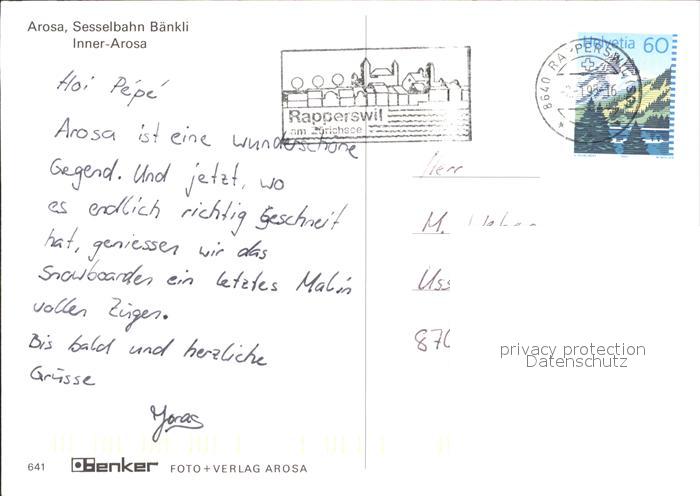 Arosa, Sesselbahn Bänkli
Inner-Arosa
Hoi Pépé
Arosa ist eine wunderschöne
Gegend. Und jetzt, wo
es endlich richtig geschneit
hat, geniessen wir das
Snowboarden ein letztes Mal in
vollen Zügen.
Bis bald und herzliche
Grüsse
Jonas
641 Benker FOTO+VERLAG AROSA
Rapperswil
am Zürichsee
8640 RAPPERSWIL SG
Helvetia 60
Herr
M.
Uss
870
privacy protection
Datenschutz